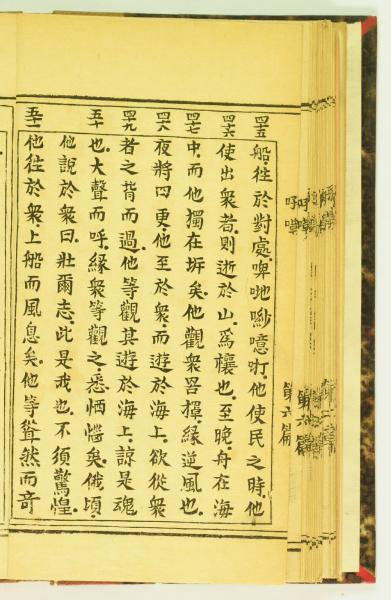 四五 船往於對處啤吔𠸍噫咑他使民之時他
四六 使出衆者則逝於山爲禳也至晚舟在海
四七 中而他獨在坼矣他觀衆罟撣緣逆風也
四八 夜將四更他至於衆而遊於海上欲從衆
四九 者之背而過他等觀其遊於海上諒是魂
五十 也大聲而呼緣衆等觀之悉恓惶矣俄頃
他說於衆曰壯爾志此是我也不須驚惶
五一 他往於衆上船而風息矣他等聳然而奇
第六篇